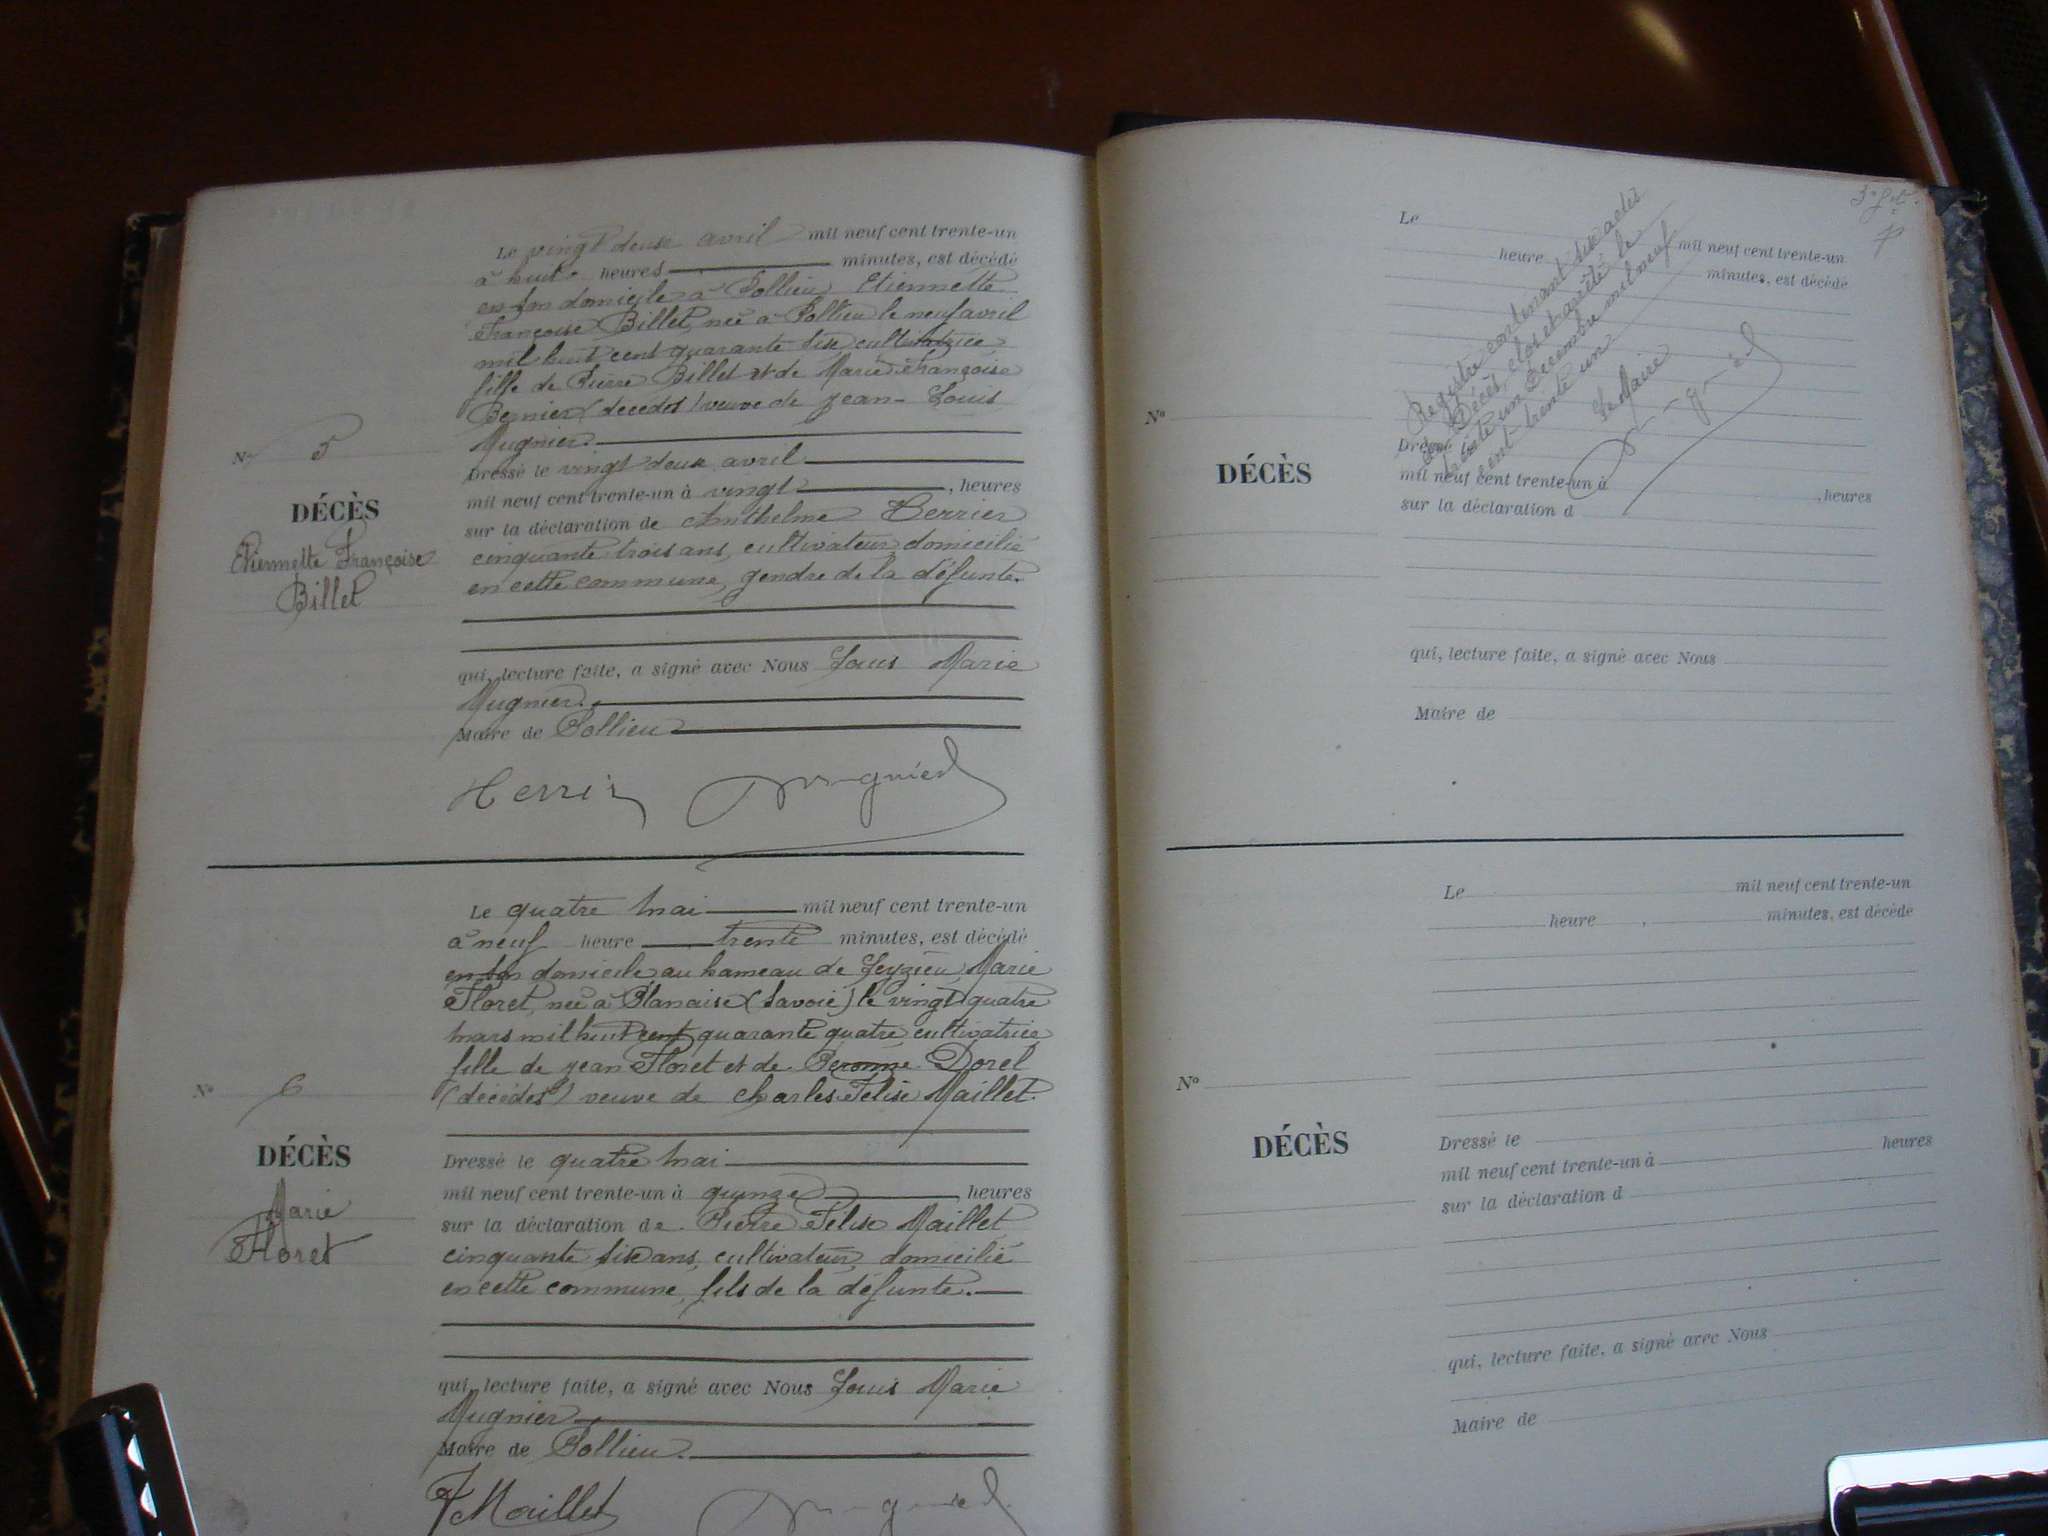 Le vingt deux avril mil neuf cent trente-un
à huit heures minutes, est décédé
en son domicile à Pollieu Etiennette
Françoise Billet, née à Pollieu le neuf avril
mil huit cent quarante six cultivatrice
fille de Pierre Billet et de Marie Françoise
Bernier (décédés) veuve de Jean-Louis
Mugnier.
N° 5
DÉCÈS
Etiennette Françoise
Billet
Dressé le vingt deux avril
mil neuf cent trente-un à vingt , heures
sur la déclaration de Anthelme Terrier
cinquante trois ans, cultivateur domicilié
en cette commune, gendre de la défunte.
qui, lecture faite, a signé avec Nous Louis Marie
Mugnier.
Maire de Pollieu
Mugnier
Le quatre mai mil neuf cent trente-un
à neuf heure trente minutes, est décédé
en son domicile au hameau de Leyzieu Marie
Floret, née à Planaise (Savoie) le vingt quatre
mars mil huit cent quarante quatre cultivatrice
fille de Jean Floret et de Peronne Dorel
(décédés) veuve de Charles Félise Maillet.
N° 6
DÉCÈS
Marie
Floret
Dressé le quatre mai
mil neuf cent trente-un à quinze , heures
sur la déclaration de Pierre Félise Maillet
cinquante six ans, cultivateur domicilié
en cette commune, fils de la défunte.
qui, lecture faite, a signé avec Nous Louis Marie
Mugnier
Maire de Pollieu.
F Maillet Mugnier
Le mil neuf cent trente-un
heure minutes, est décédé
Registre contenant six actes
de Décès, clos et arrêté le
trente un Décembre mil neuf
cent trente un
Le Maire
Mugnier
N°
DÉCÈS
Dressé
mil neuf cent trente-un à , heures
sur la déclaration d
qui, lecture faite, a signé avec Nous
Maire de
Le mil neuf cent trente-un
heure , minutes, est décédé
N°
DÉCÈS
Dressé le
mil neuf cent trente-un à heures
sur la déclaration d
qui, lecture faite, a signé avec Nous
Maire de